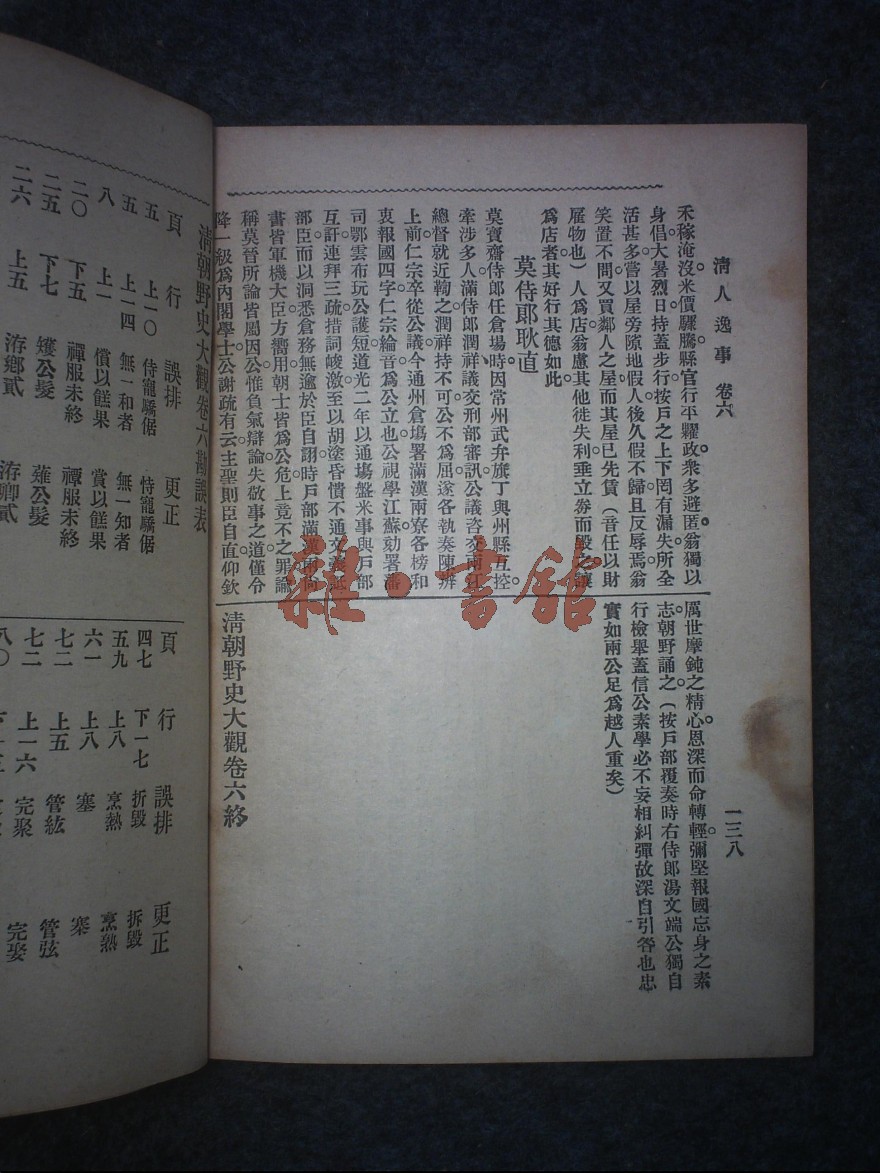 清人逸事 卷六
一三八
禾稼淹沒米價驟騰縣官行平糶政衆多避匿翁獨以
身倡大暑烈日持蓋步行按戶之上下罔有漏失所全
活甚多嘗以屋旁隙地假人後久假不歸且反辱焉翁
笑置不問又買鄰人之屋而其屋已先賃（音任以財
雇物也）人爲店翁慮其他徙失利垂立券而毀之讓
爲店者其好行其德如此
莫侍郎耿直
莫寶齋侍郎任倉場時因常州武弁旗丁與州縣互控
牽涉多人滿侍郎潤祥議交刑部審訊公議咨交兩江
總督就近鞫之潤祥持不可公不爲屈遂各執奏陳辨
上前仁宗卒從公議今通州倉塲署滿漢兩寮各榜和
衷報國四字仁宗綸音爲公立也公視學江蘇劾署藩
司鄂雲布玩公護短道光二年以通塲盤米事與戶部
互訐連拜三疏措詞峻激至以胡塗昏憒不通文義詆
部臣而以洞悉倉務無逾於臣自詡時戶部滿漢兩尚
書皆軍機大臣方嚮用朝士皆爲公危上竟不之罪論
稱莫晉所論皆屬因公惟負氣辯論失敬事之道僅令
降一級爲內閣學士公謝疏有云主聖則臣自直仰欽
厲世摩鈍之精心恩深而命轉輕彌堅報國忘身之素
志朝野誦之（按戶部覆奏時右侍郎湯文端公獨自
行檢舉蓋信公素學必不妄相糾彈故深自引咎也忠
實如兩公足爲越人重矣）
清朝野史大觀卷六終
清朝野史大觀卷六勘誤表
頁 行 誤排 更正
五 上一〇 侍寵驕倨 恃寵驕倨
五 上一四 無一和者 無一知者
八 上一 償以餻果 賞以餻果
二〇 下五 禪服未終 禫服未終
二五 下七 矮公髮 薙公髮
二六 上五 洊鄉貳 洊卿貳
頁 行 誤排 更正
四七 下一七 折毀 拆毀
五九 上八 烹熱 烹熟
六一 上八 塞 寒
七二 上五 管絃 管弦
七二 上一六 完聚 完娶
雜·書館